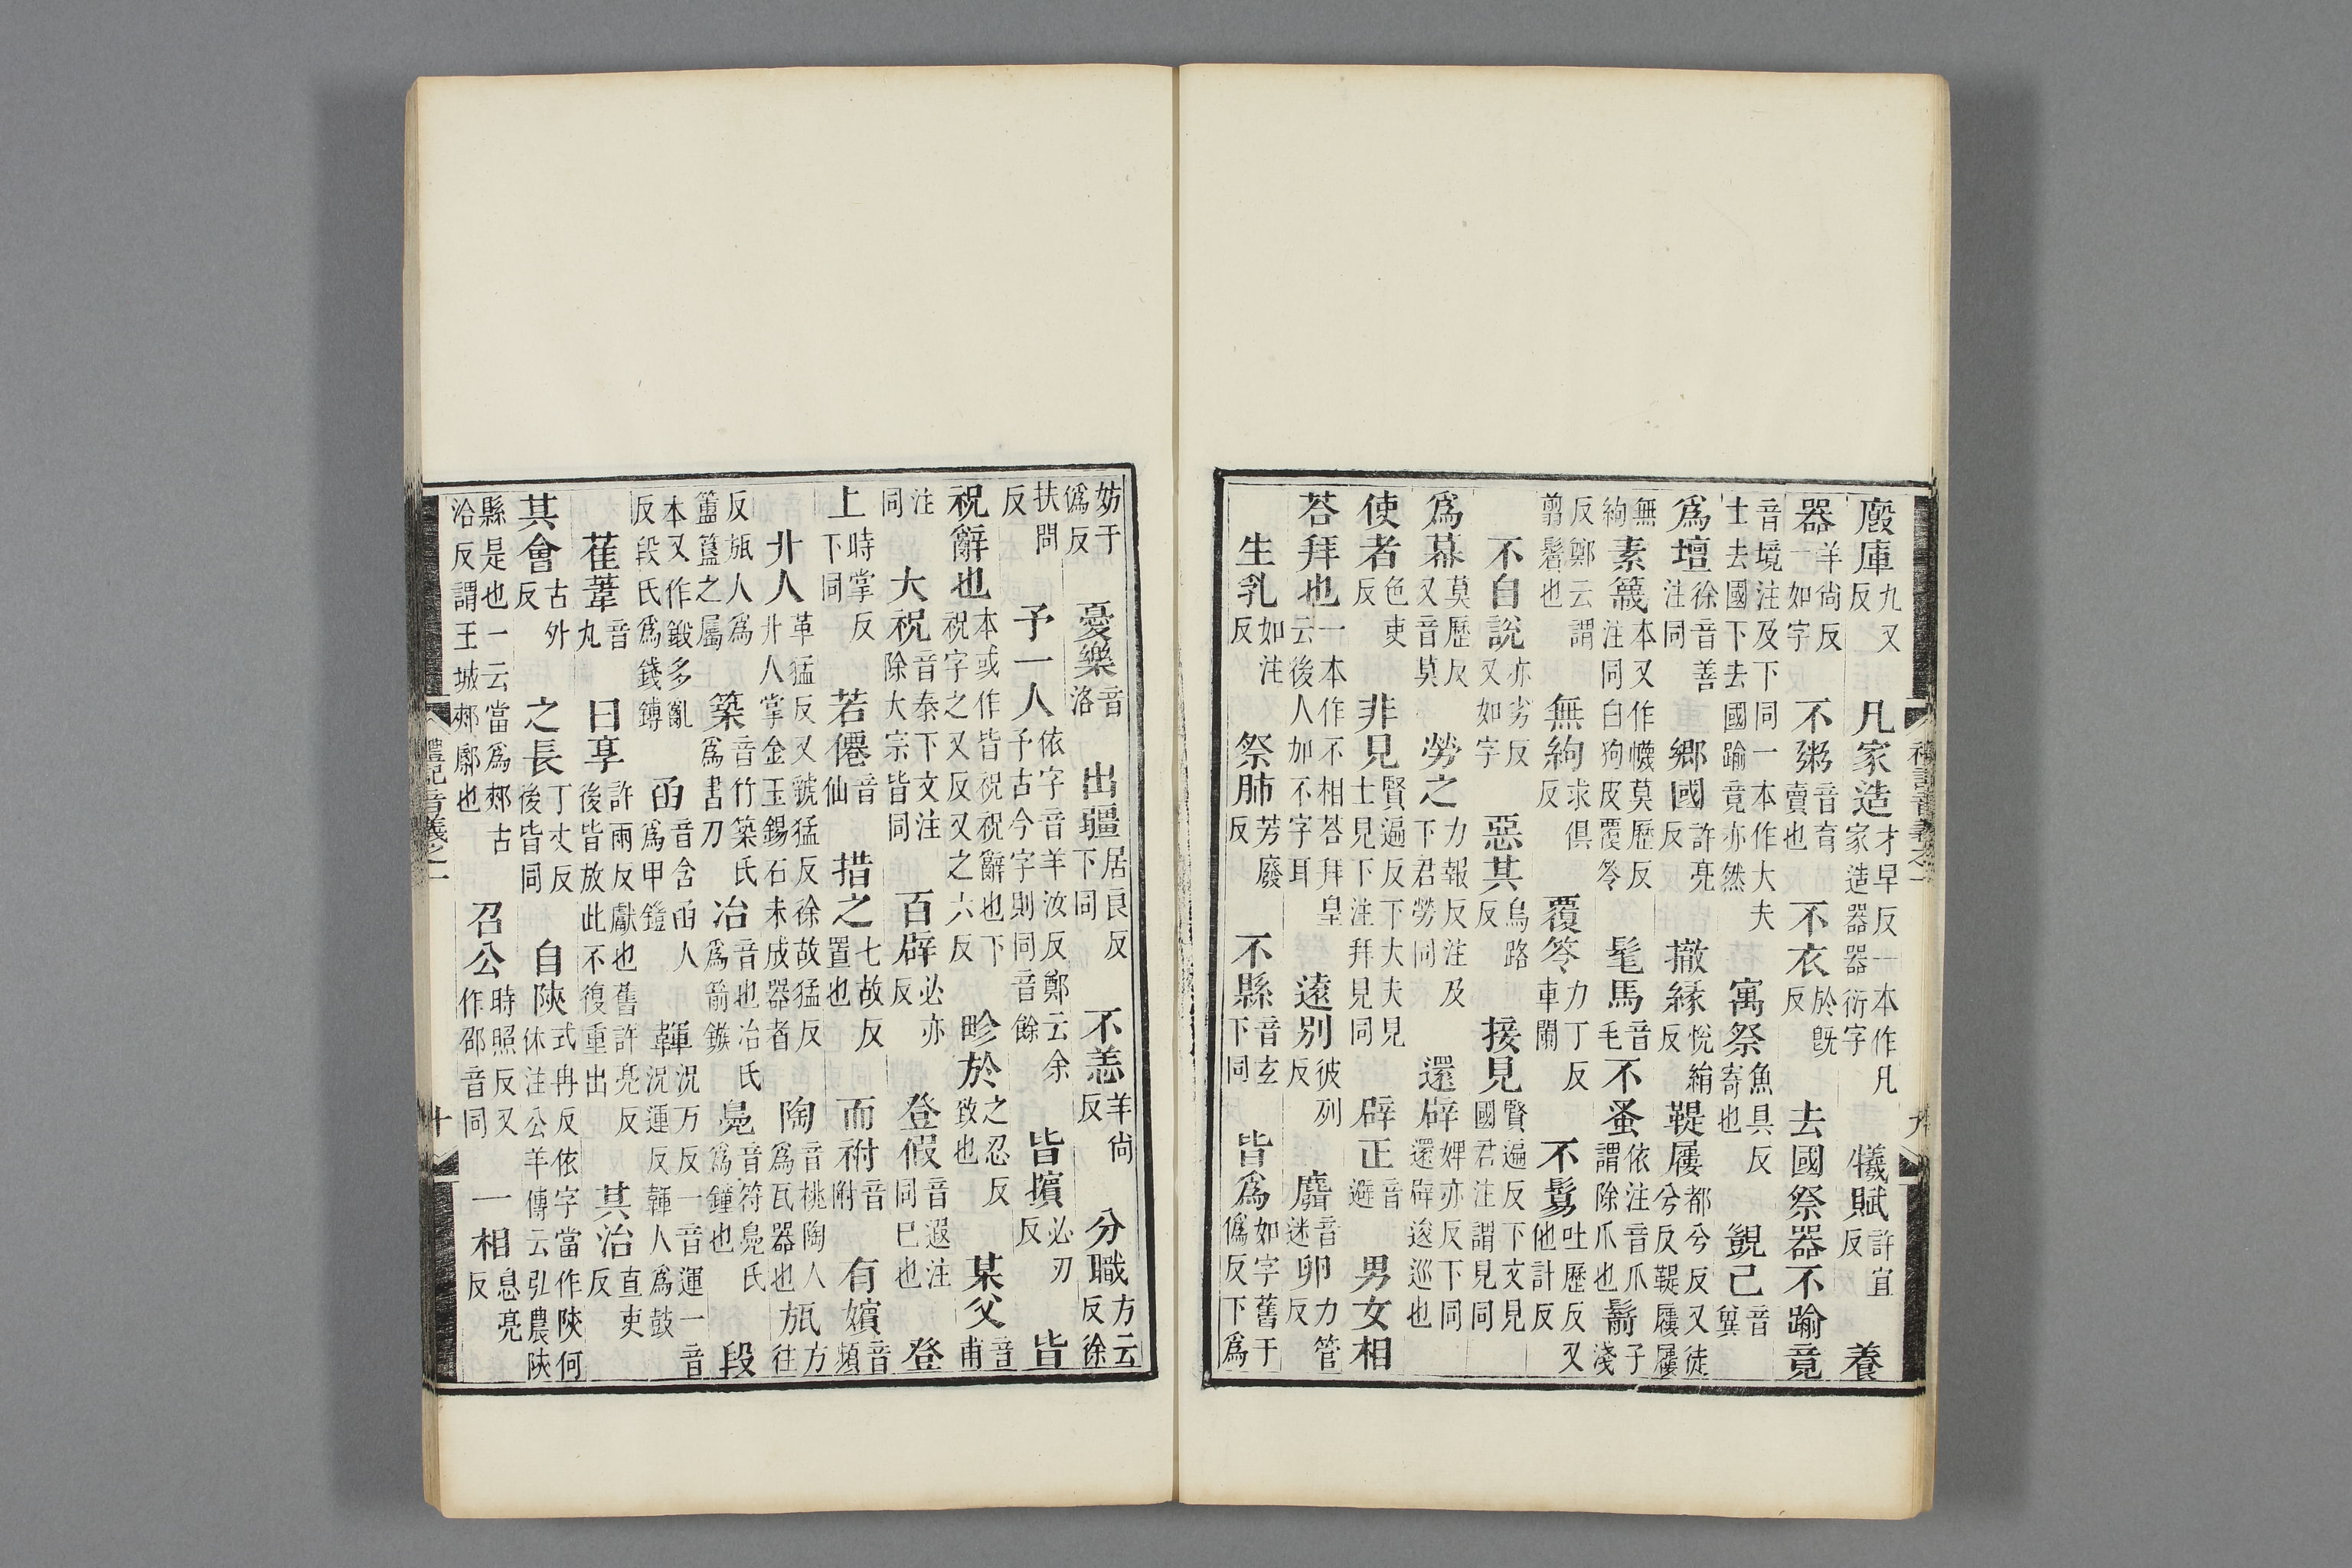 廄庫九又反 凡家造才早反一本作凡家造器器衍字 犧賦許宜反 養
器羊尚反一如字 不粥音育賣也 不衣於旣反 去國祭器不踰竟
音境注及下同一本作大夫士去國下去國踰竟亦然 寓祭魚具反寄也 覬己音冀
爲壇徐音善注同 鄉國許亮反 撤緣悅絹反 鞮屨都兮反又徒兮反鞮屨屨
無絇 素簚本又作幭莫歷反注同白狗皮覆笭 髦馬音毛 不蚤依注音爪謂除爪也 鬋子淺
反鄭云謂翦鬢也 無絇求俱反 覆笭力丁反車闌 不鬄吐歷反又他計反
不自說亦劣反又如字 惡其烏路反 接見賢遍反下文見國君注謂見同
爲幕莫歷反又音莫 勞之力報反注及下君勞同 還辟婢亦反下同還辟逡巡也
使者色吏反 非見賢遍反下大夫見士見下注拜見同 辟正音避 男女相
荅拜也一本作不相荅拜皇云後人加不字耳 遠別彼列反 麛音迷 卵力管反
生乳如注反 祭肺芳廢反 不縣音玄下同 皆爲如字舊于僞反下爲
禮記音義之一
九
妨于僞反 憂樂音洛 出疆居良反下同 不恙羊尚反 分職方云反徐
扶問反 予一人依字音羊汝反鄭云余予古今字則同音餘 皆擯必刃反 皆
祝辭也本或作皆祝祝辭也下祝字之又反又之六反 畛於之忍反致也 某父音甫
注同 大祝音泰下文注除大宗皆同 百辟必亦反 登假音遐注同已也 登
上時掌反下同 若僊音仙 措之七故反置也 而祔音附 有嬪音頻
卝人革猛反又虢猛反徐故猛反卝人掌金玉錫石未成器者 陶音桃陶人爲瓦器也 瓬方往
反瓬人爲簠簋之屬 築音竹築氏爲書刀 冶音也冶氏爲箭鏃 鳧音符鳧氏爲鐘也 段
本又作鍛多亂反段氏爲錢鎛 函音含函人爲甲鎧 韗況万反一音運一音況運反韗人爲鼓
萑葦音丸 曰享許兩反獻也舊許亮反後皆放此不復重出 其治直吏反
其會古外反 之長丁丈反後皆同 自陝式冉反依字當作陝何休注公羊傳云弘農陝
縣是也一云當爲郟古洽反謂王城郟鄏也 召公時照反又作邵音同 一相息亮反
禮記音義之一
十